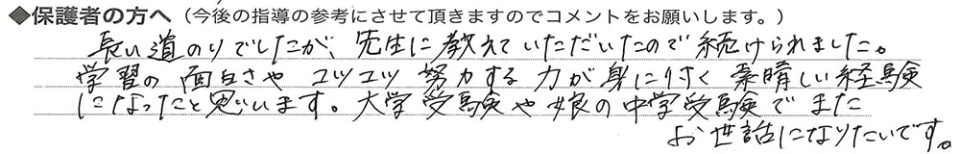 ◆保護者の方へ（今後の指導の参考にさせて頂きますのでコメントをお願いします。）
長い道のりでしたが、先生に教えていただいたので続けられました。
学習の面白さや コツコツ 努力する力が身につく 素晴しい経験
になったと思います。大学受験や娘の中学受験でまた
お世話になりたいです。